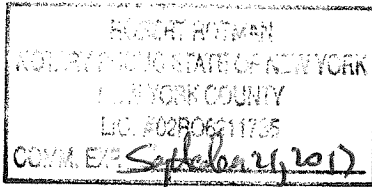 ROBERT ROTMAN
NOTARY PUBLIC STATE OF NEW YORK
NEW YORK COUNTY
LIC. #02RO6211735
COMM. EXP. September 21, 2017